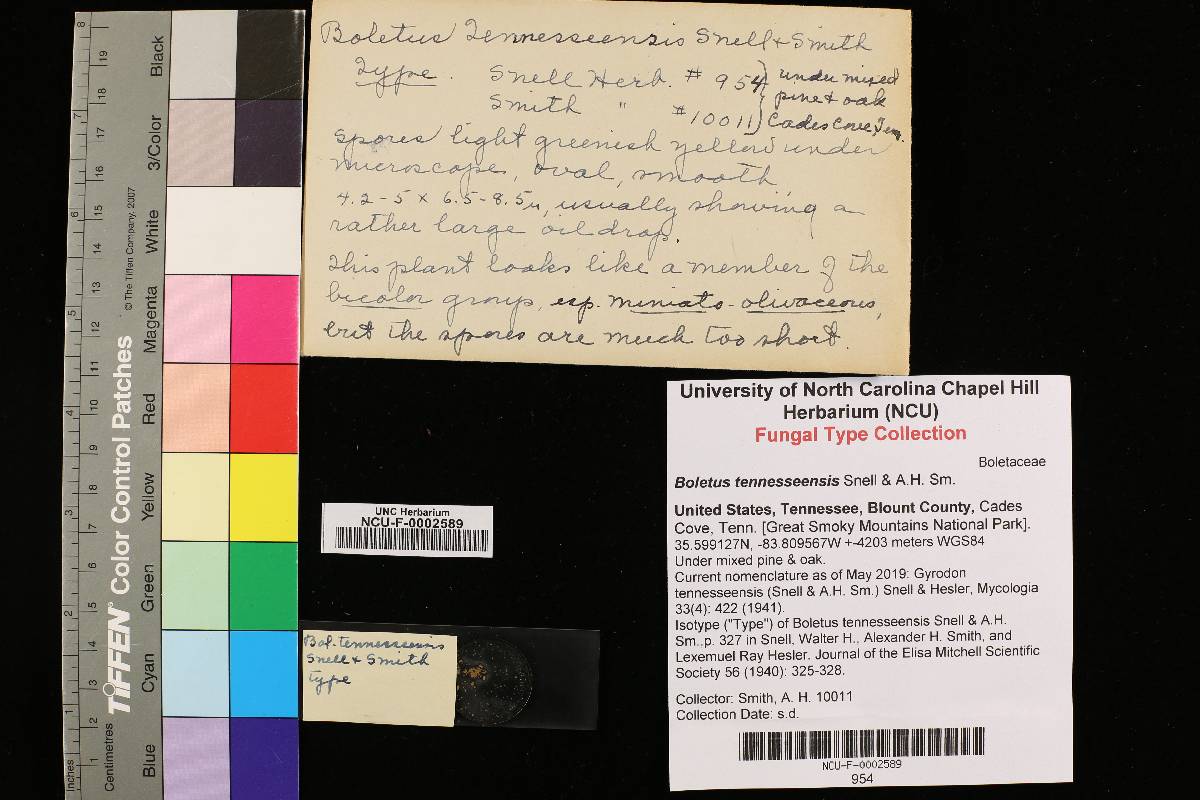 Boletus Tennesseensis Snell & Smith
Type. Snell Herb. # 954 } under mixed
Smith " # 10011 } pine & oak
Cades Cove, Tenn.
spores light greenish yellow under
microscope, oval, smooth,
4.2 - 5 x 6.5 - 8.5u, usually showing a
rather large oil drop.
This plant looks like a member of the
bicolor group, esp. miniato-olivaceous,
but the spores are much too short.
University of North Carolina Chapel Hill
Herbarium (NCU)
Fungal Type Collection
Boletaceae
Boletus tennesseensis Snell & A.H. Sm.
United States, Tennessee, Blount County, Cades
Cove, Tenn. [Great Smoky Mountains National Park].
35.599127N, -83.809567W +-4203 meters WGS84
Under mixed pine & oak.
Current nomenclature as of May 2019: Gyrodon
tennesseensis (Snell & A.H. Sm.) Snell & Hesler, Mycologia
33(4): 422 (1941).
Isotype ("Type") of Boletus tennesseensis Snell & A.H.
Sm., p. 327 in Snell, Walter H., Alexander H. Smith, and
Lexemuel Ray Hesler. Journal of the Elisa Mitchell Scientific
Society 56 (1940): 325-328.
Collector: Smith, A. H. 10011
Collection Date: s.d.
NCU-F-0002589
954
UNC Herbarium
NCU-F-0002589
Bol. tennesseensis
Snell & Smith
type
TIFFEN® Color Control Patches
© The Tiffen Company, 2007
Black
3/Color
White
Magenta
Red
Yellow
Green
Cyan
Blue
Inches
1
2
3
4
5
6
7
8
Centimetres
1
2
3
4
5
6
7
8
9
10
11
12
13
14
15
16
17
18
19